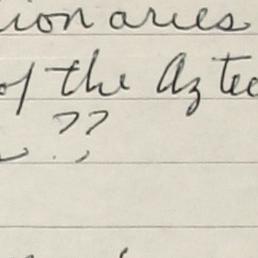 ionaries
of the Aztec
??